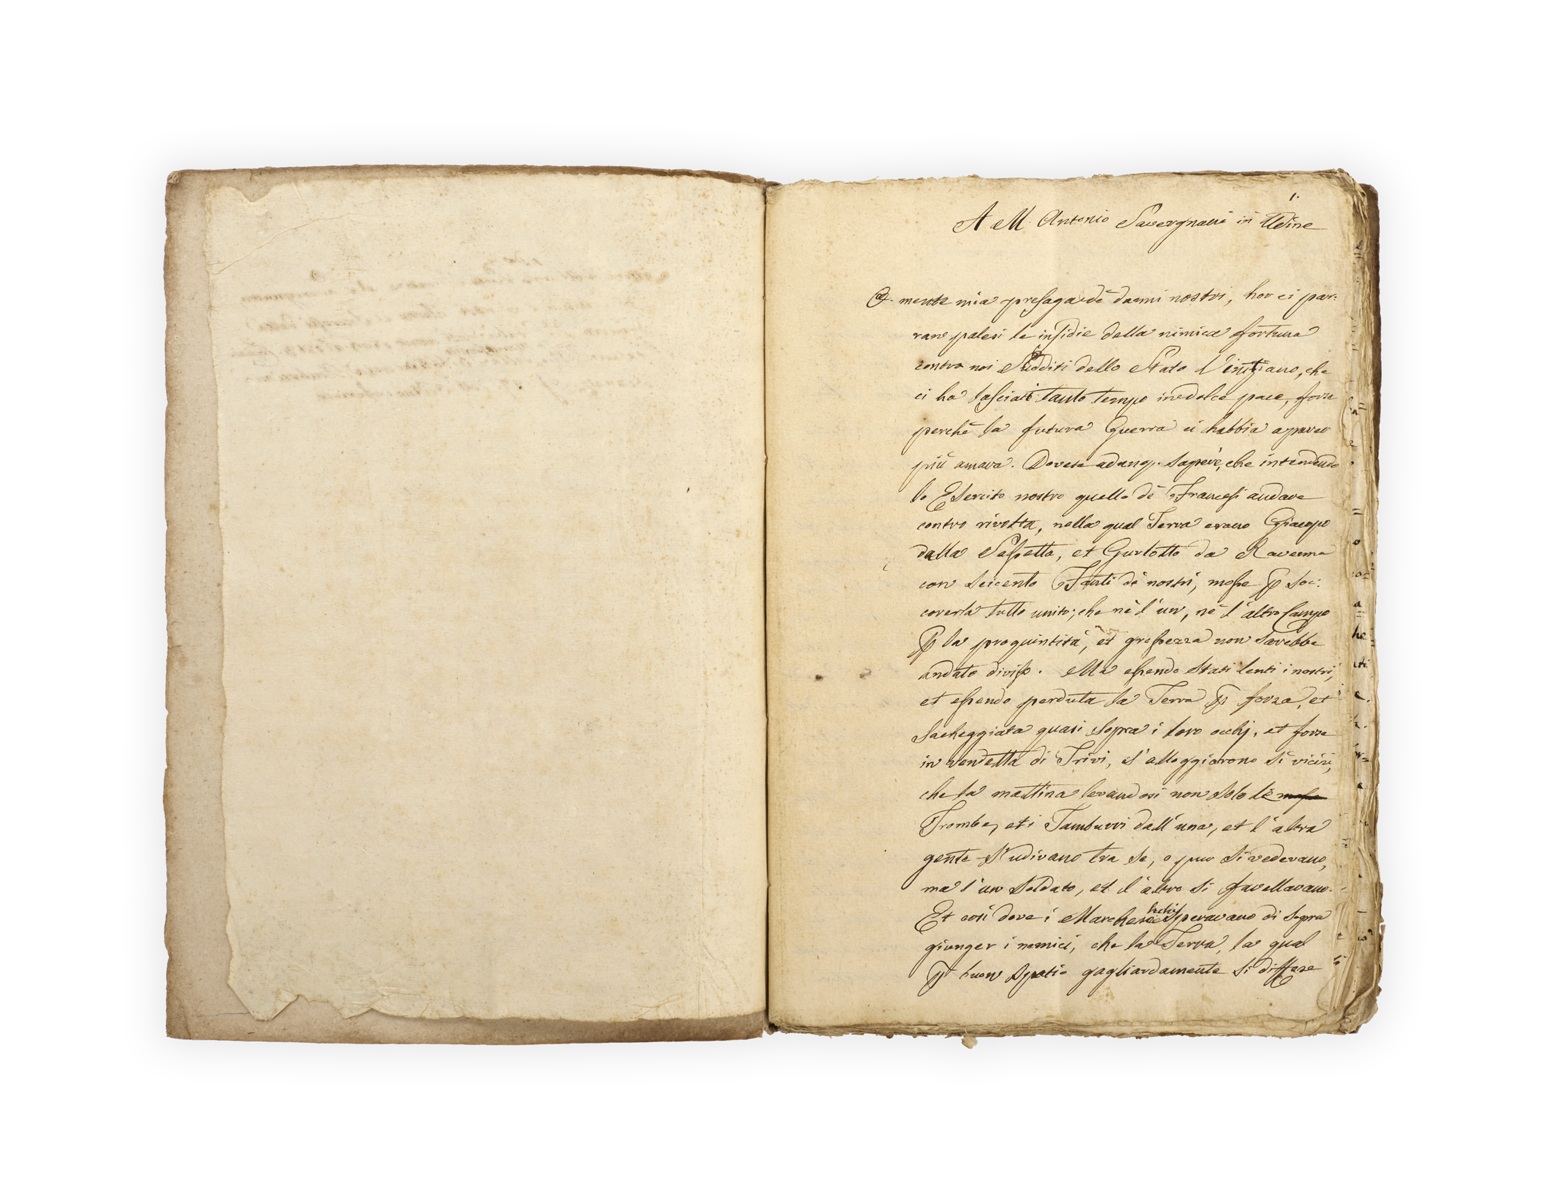 1.
A M. Antonio Savergnani in Udine
O mente mia presaga dè danni nostri, hor ci par:
rano palesi le insidie della nimica fortuna
contro noi Sudditi dello Stato Vinitiano, che
ci ha lasciati tanto tempo in dolce pace, forse
perchè la futura Guerra ci habbia a parer
più amara. Dovete adunq. sapere, che intendendo
lo Esercito nostro quello dè Francesi andare
contro rivolta, nella qual Terra erano Giacopo
dalla Sassetta, et Gurlotto da Ravenna
con seicento Fanti dè nostri, mosse ꝑ soc:
correrla tutto unito; che nè l'un, nè l'altro Campo
ꝑ la proquintità, et grossezza non sarebbe
andato diviso. Ma essendo stati lenti i nostri,
et essendo perduta la Terra ꝑ forza, et
saccheggiata quasi sopra i loro occhj, et forse
in vendetta di Trivi, s'alloggiorono sì vicini,
che la mattina levandosi non solo le
Trombe, et i Tamburri dall'una, et l'altra
gente s'udivano tra se, o pur si vedevano,
ma l'un soldato, et l'altro si favellavano.
Et così dove i Marcheschi speravano di sopra
giunger i nemici, che la Terra, la qual
ꝑ buon spatio gagliardamente si diffese